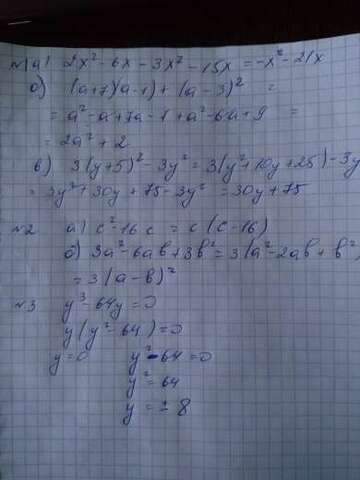 №1 а) 2x² - 6x - 3x² - 15x = -x² - 21x
б) (a+7)(a-1) + (a-3)² =
= a² - a + 7a - 1 + a² - 6a + 9 =
= 2a² + 2
в) 3(y+5)² - 3y² = 3(y² + 10y + 25) - 3y
= 3y² + 30y + 75 - 3y² = 30y + 75
№2 а) c² - 16c = c(c-16)
б) 3a² - 6ab + 3b² = 3(a² - 2ab + b²)
= 3(a-b)²
№3 y³ - 64y = 0
y(y² - 64) = 0
y = 0 y² - 64 = 0
y² = 64
y = ±8